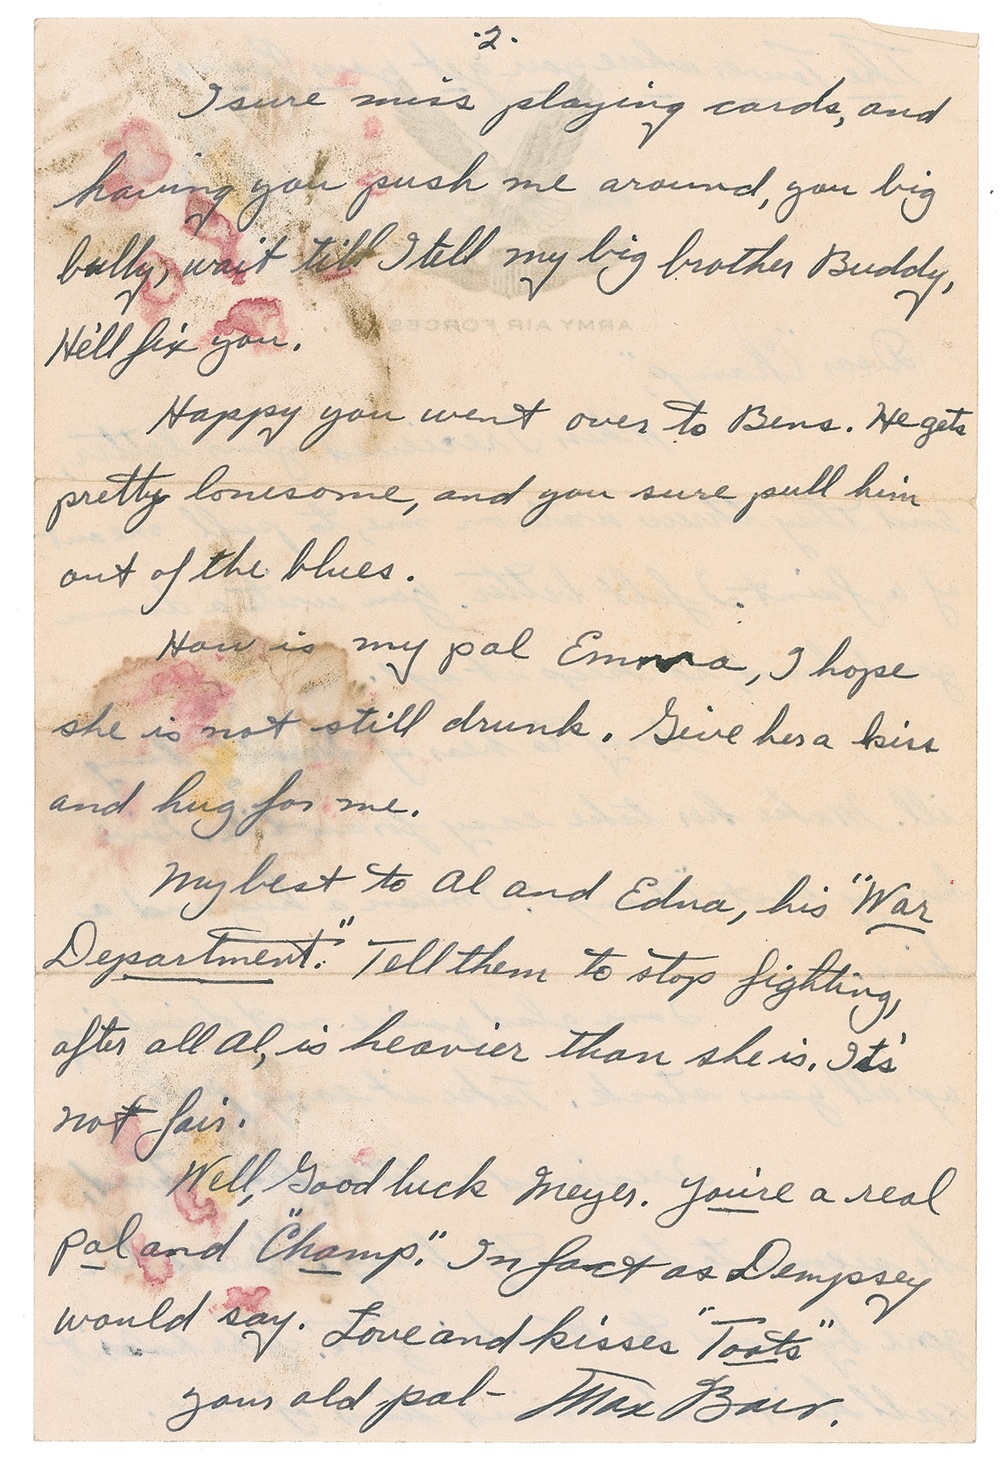 ·2·
I sure miss playing cards, and
having you push me around, you big
bully, wait till I tell my big brother Buddy,
He'll fix you.
Happy you went over to Bens. He gets
pretty lonesome, and you sure pull him
out of the blues.
How is my pal Emma, I hope
she is not still drunk. Give her a kiss
and hug for me.
My best to Al and Edna, his "War
Department." Tell them to stop fighting,
after all Al, is heavier than she is. It's
not fair.
Well, Good luck Meyer. You're a real
pal and "Champ". In fact as Dempsey
would say. Love and kisses "Toots"
your old pal- Max Baer.
ARMY AIR FORCES
Dear "Champ"